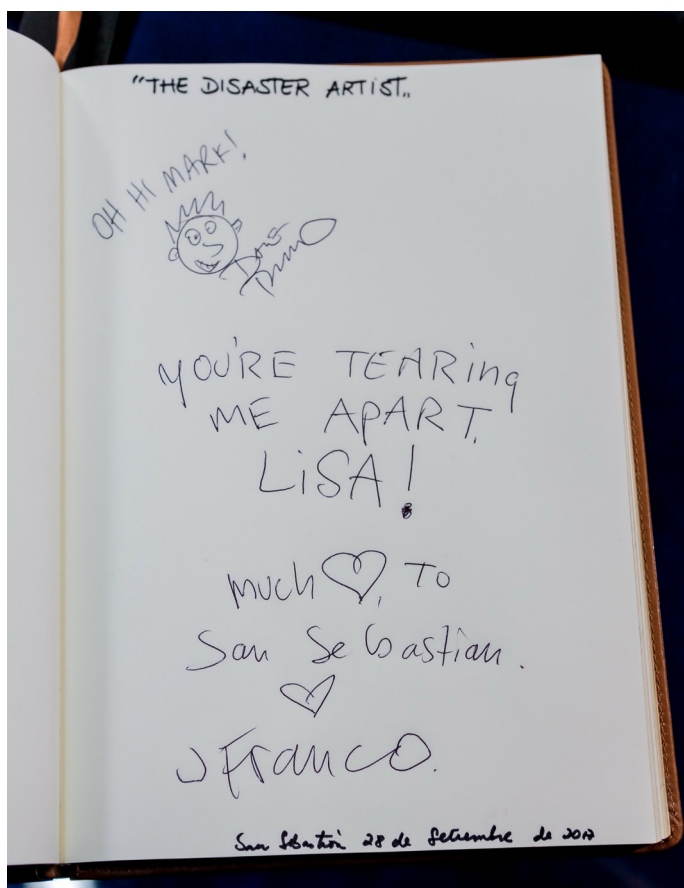 "THE DISASTER ARTIST"
OH HI MARK!
YOU'RE TEARing
ME APART,
LiSA!
Much ♡, TO
San Sebastian.
♡
J Franco.
San Sebastián 28 de Setiembre de 2017